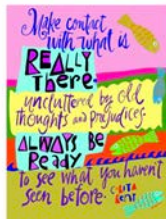 Make contact
with what is
REALLY
There.
uncluttered by old
thoughts and prejudices.
ALWAYS BE
Ready
to see what you haven't
seen before.
CORITA
KENT